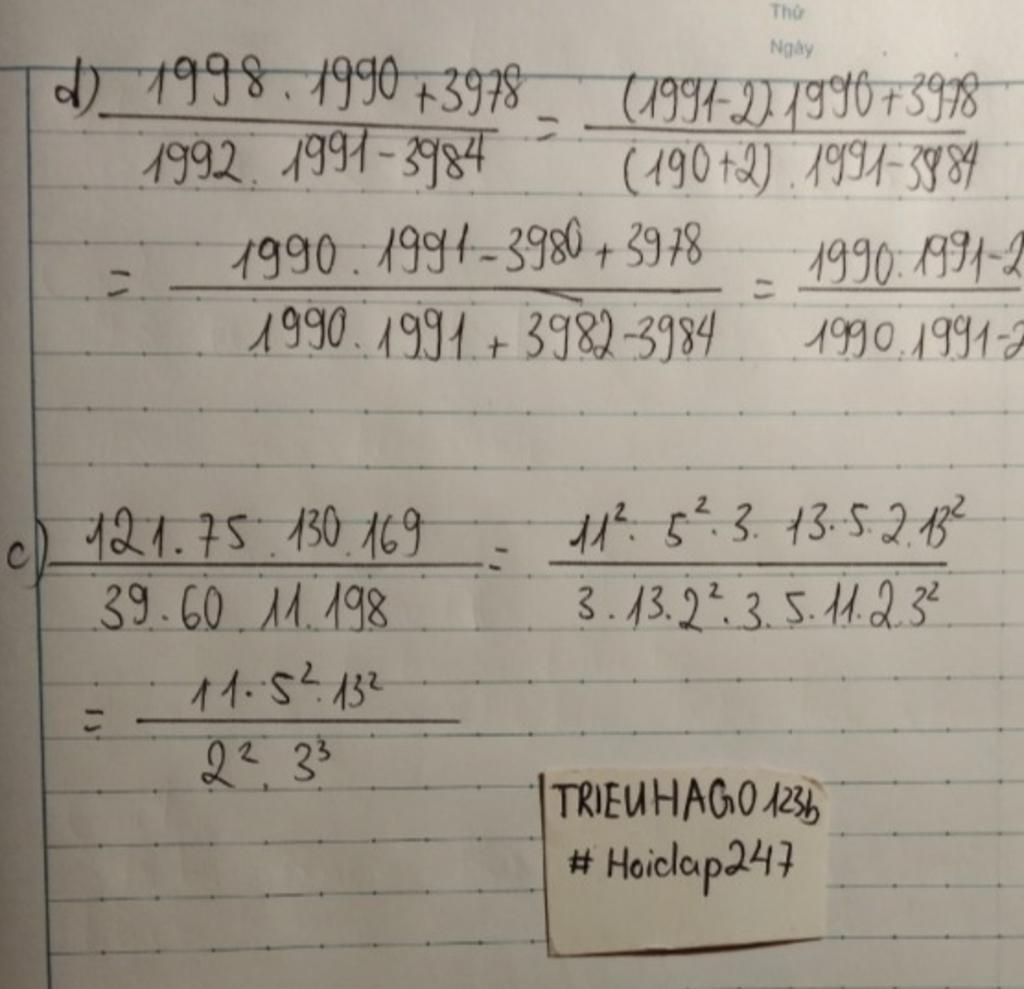 Thứ
Ngày
d) 1998 . 1990 + 3978 / 1992 . 1991 - 3984 = (1991-2).1990+3978 / (190+2) . 1991-3984
= 1990 . 1991 - 3980 + 3978 / 1990 . 1991 + 3982 - 3984 = 1990 . 1991-2 / 1990 . 1991-2
c) 121 . 75 . 130 . 169 / 39 . 60 11 . 198 = 11² . 5² . 3 . 13 . 5 . 2 . 13² / 3 . 13 . 2² . 3 . 5 . 11 . 2 . 3²
= 11 . 5² . 13² / 2² . 3³
TRIEUHAGO123b
# Hoidap247